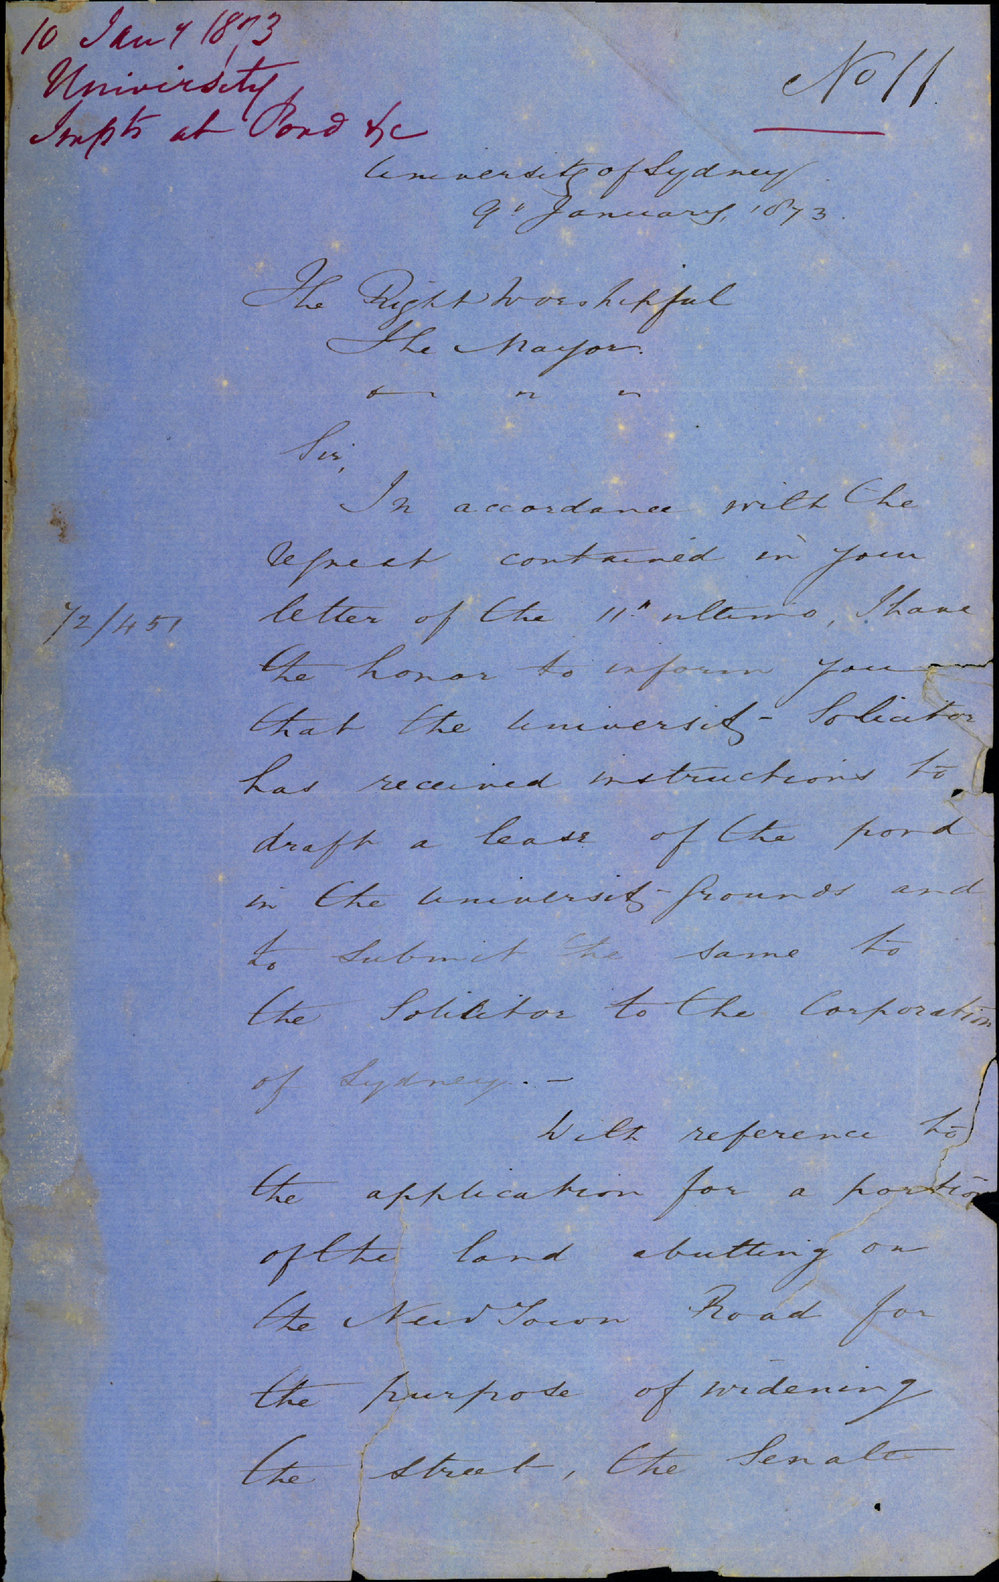 10 Jany 1873
University
Impts at Pond &c
No 11
University of Sydney
9" January, 1873.
The Right Worshipful
The Mayor.
Sir,
In accordance with the
request contained in your
letter of the 11" ultimo, I have
72/451
the honor to inform you
that the University Solicitor
has received instructions to
draft a lease of the pond
in the University Grounds and
to submit the same to
the Solicitor to the Corporation
of Sydney. —
With reference to
the application for a portion
of the land abutting on
the New Town Road for
the purpose of widening
the street, the Senate